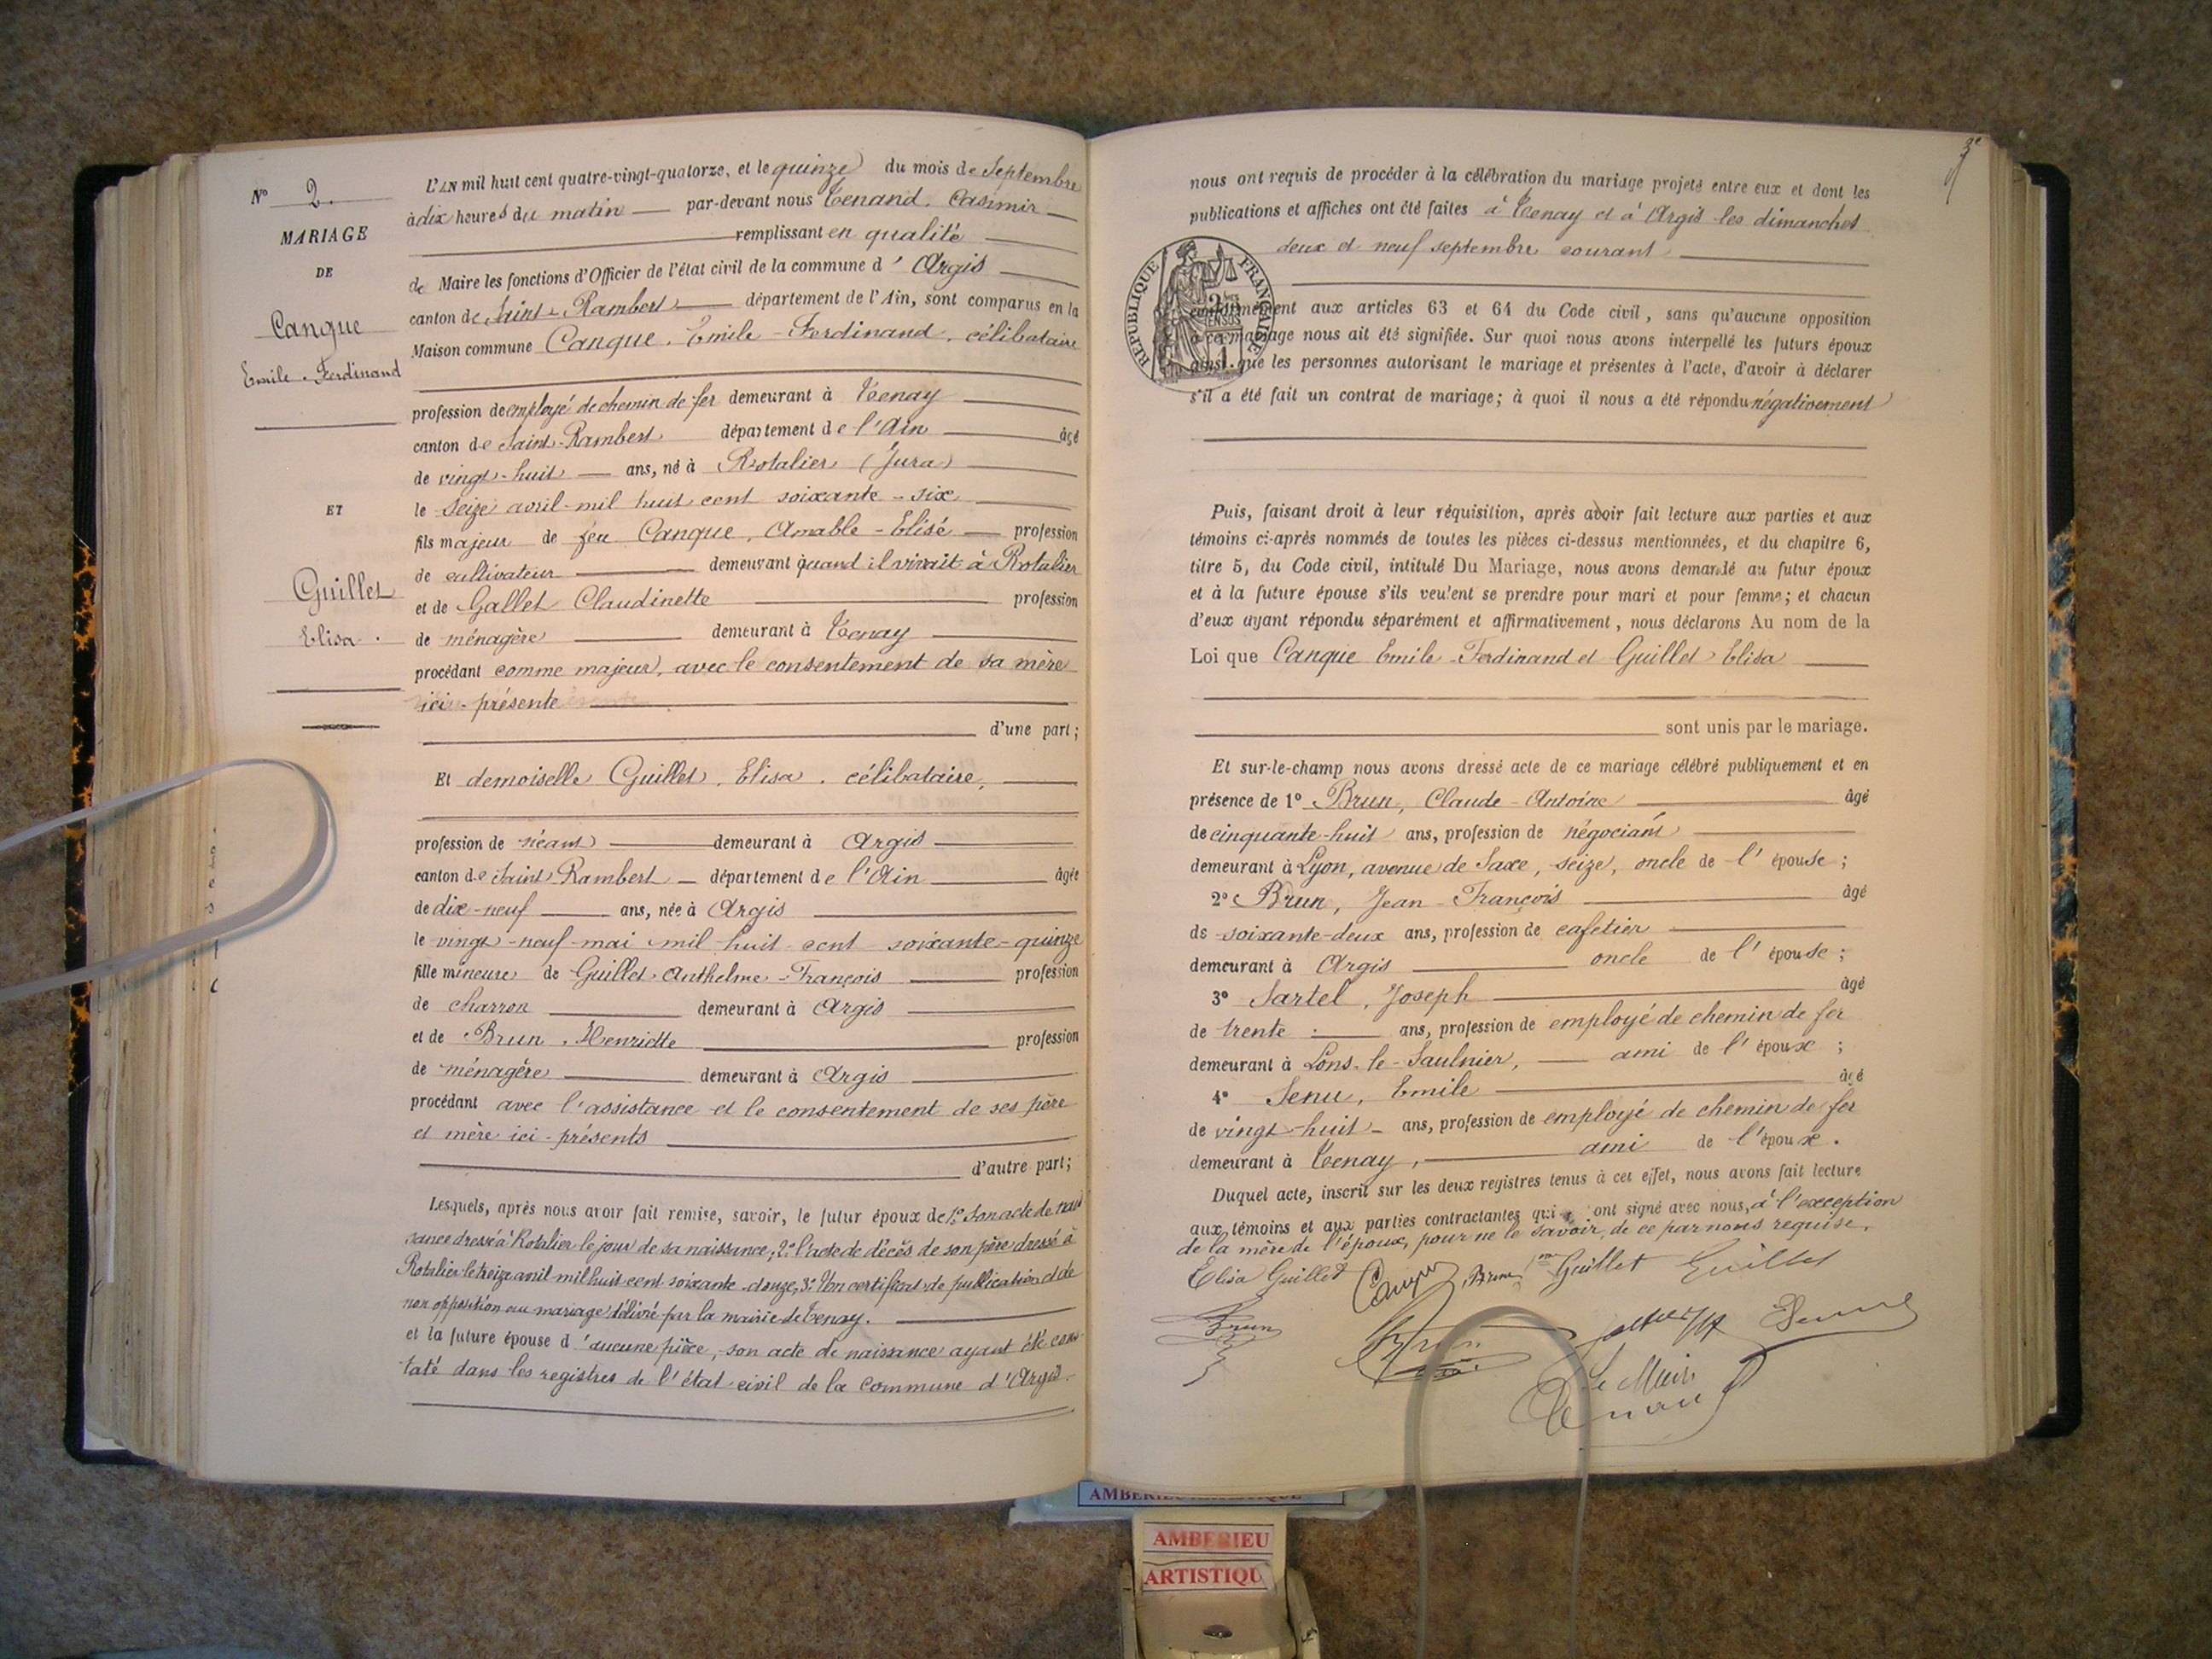 N° 2.
MARIAGE
DE
Canque
Emile-Ferdinand
ET
Guillet
Elisa.
L'AN mil huit cent quatre-vingt-quatorze, et le quinze du mois de Septembre
à dix heures du matin par-devant nous Tenand, Casimir
remplissant en qualité
de Maire les fonctions d'Officier de l'état civil de la commune d'Argis
canton de Saint-Rambert département de l'Ain, sont comparus en la
Maison commune Canque, Emile-Ferdinand, célibataire
profession de employé de chemin de fer demeurant à Tenay
canton de Saint-Rambert département de l'Ain âgé
de vingt-huit ans, né à Rotalier (Jura)
le Seize avril mil huit cent soixante-six
fils majeur de feu Canque, Amable-Elisé profession
de cultivateur demeurant quand il vivait à Rotalier
et de Gallet Claudinette profession
de ménagère demeurant à Tenay
procédant comme majeur, avec le consentement de sa mère
ici-présente
d'une part;
Et demoiselle Guillet, Elisa, célibataire,
profession de néant demeurant à Argis
canton de Saint Rambert département de l'Ain âgée
de dix-neuf ans, née à Argis
le vingt-neuf mai mil huit cent soixante-quinze
fille mineure de Guillet Anthelme-François profession
de charron demeurant à Argis
et de Brun, Henriette profession
de ménagère demeurant à Argis
procédant avec l'assistance et le consentement de ses père
et mère ici-présents
d'autre part;
Lesquels, après nous avoir fait remise, savoir, le futur époux de 1° Son acte de nais
sance dressé à Rotalier le jour de sa naissance; 2° l'acte de décès de son père dressé à
Rotalier le treize avril mil huit cent soixante-douze, 3° Un certificat de publication et de
non opposition au mariage délivré par la mairie de Tenay.
et la future épouse d'aucune pièce, son acte de naissance ayant été cons-
taté dans les registres de l'état-civil de la commune d'Argis.
3e
nous ont requis de procéder à la célébration du mariage projeté entre eux et dont les
publications et affiches ont été faites à Tenay et à Argis les dimanches
deux et neuf septembre courant
RÉPUBLIQUE FRANÇAISE
conformément aux articles 63 et 64 du Code civil, sans qu'aucune opposition
à ce mariage nous ait été signifiée. Sur quoi nous avons interpellé les futurs époux
ainsi que les personnes autorisant le mariage et présentes à l'acte, d'avoir à déclarer
s'il a été fait un contrat de mariage; à quoi il nous a été répondu négativement
Puis, faisant droit à leur réquisition, après avoir fait lecture aux parties et aux
témoins ci-après nommés de toutes les pièces ci-dessus mentionnées, et du chapitre 6,
titre 5, du Code civil, intitulé Du Mariage, nous avons demandé au futur époux
et à la future épouse s'ils veulent se prendre pour mari et pour femme; et chacun
d'eux ayant répondu séparément et affirmativement, nous déclarons Au nom de la
Loi que Canque Emile-Ferdinand et Guillet Elisa
sont unis par le mariage.
Et sur-le-champ nous avons dressé acte de ce mariage célébré publiquement et en
présence de 1° Brun, Claude-Antoine âgé
de cinquante-huit ans, profession de négociant
demeurant à Lyon, avenue de Saxe, seize, oncle de l'épouse;
2° Brun, Jean-François âgé
de soixante-deux ans, profession de cafetier
demeurant à Argis oncle de l'épouse;
3° Sartel, Joseph âgé
de trente ans, profession de employé de chemin de fer
demeurant à Lons-le-Saulnier, ami de l'époux;
4° Senu, Emile âgé
de vingt-huit ans, profession de employé de chemin de fer
demeurant à Tenay, ami de l'époux.
Duquel acte, inscrit sur les deux registres tenus à cet effet, nous avons fait lecture
aux témoins et aux parties contractantes qui ont signé avec nous, à l'exception
de la mère de l'époux, pour ne le savoir, de ce par nous requise.
Elisa Guillet Canque Brun Guillet Guillet
Brun Brun Senu
Le Maire
Tenand
AMBERIEU ARTISTIQUE
AMBERIEU
ARTISTIQU